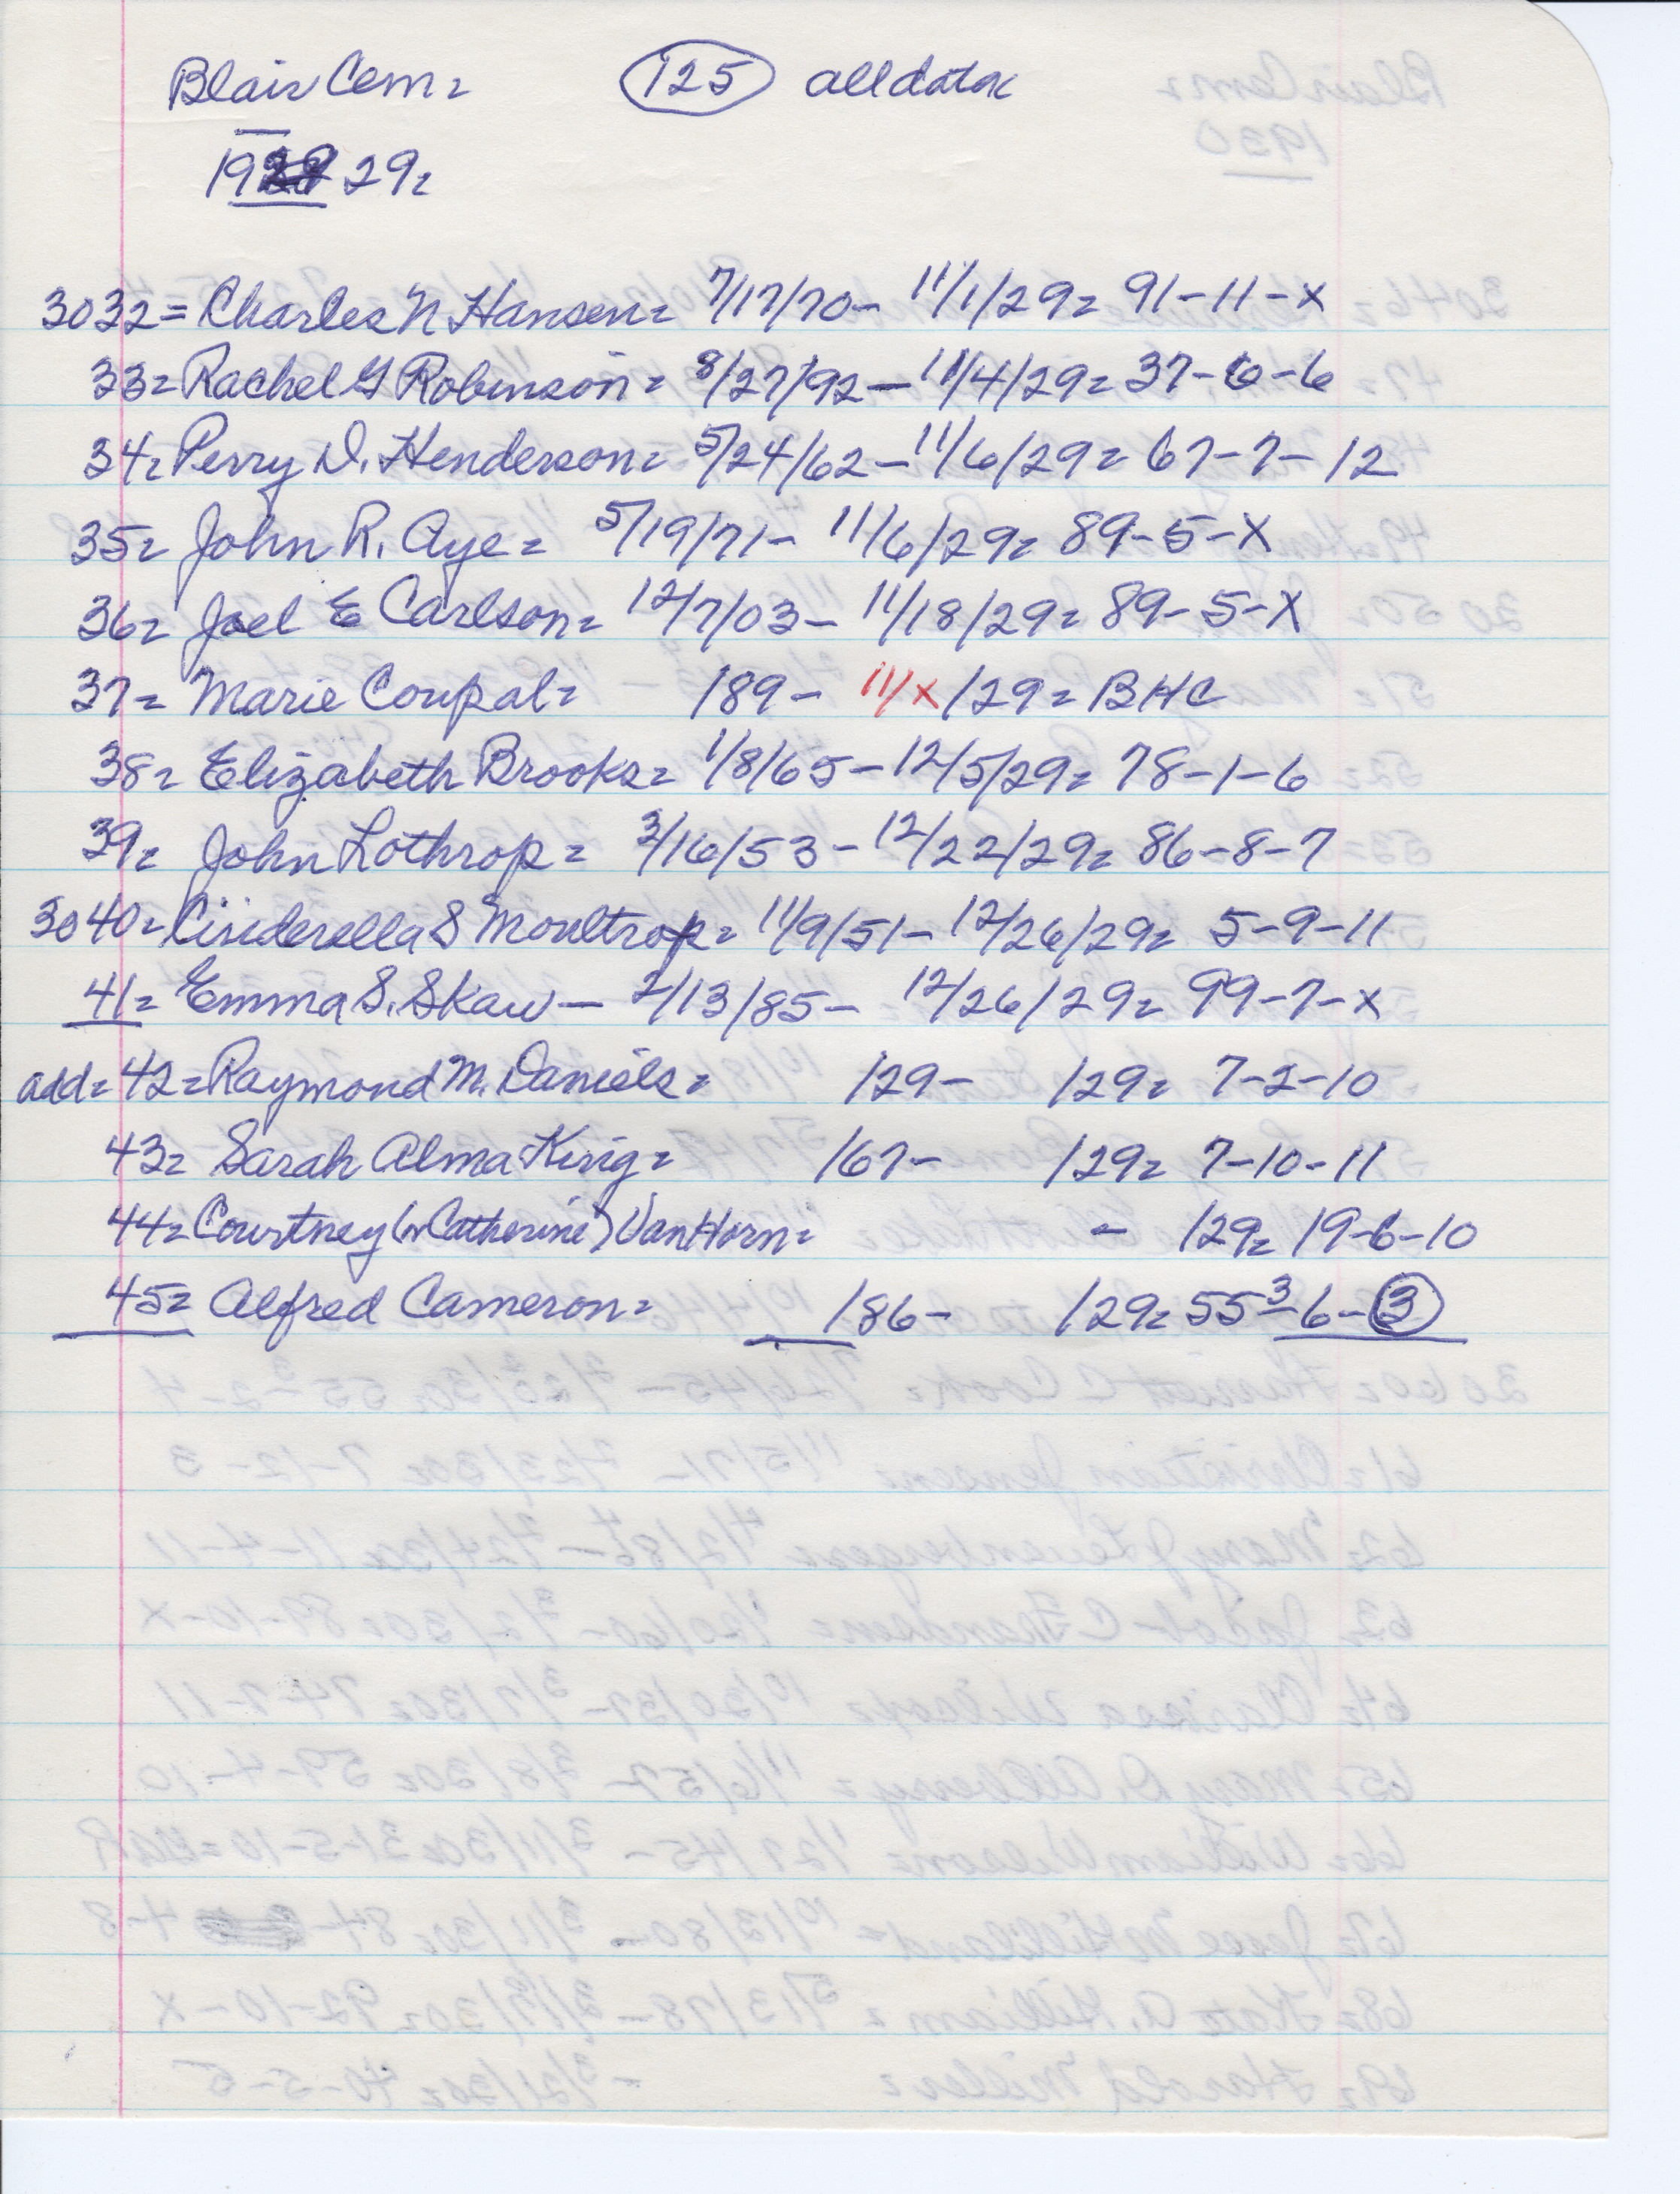 Blair Cem= 125 all data
19 29=
3032= Charles N Hansen= 7/17/70- 11/1/29= 91-11-X
33= Rachel G Robinson= 8/27/92-11/4/29= 37-6-6
34= Perry D. Henderson= 5/24/62-11/6/29= 67-7-12
35= John R. Aye= 5/19/71- 11/6/29= 89-5-X
36= Joel E Carlson= 12/7/03- 11/18/29= 89-5-X
37= Marie Coupal= /89- 11/X/29= BHC
38= Elizabeth Brooks= 1/8/65-12/5/29= 78-1-6
39= John Lothrop= 3/16/53-12/22/29= 86-8-7
3040= Cinderella S Moultrop= 11/9/51-12/26/29= 5-9-11
41= Emma S. Skaw- 2/13/85- 12/26/29= 99-7-X
add= 42= Raymond M. Daniels= /29- /29= 7-2-10
43= Sarah Alma King= /67- /29= 7-10-11
44= Courtney (or Catherine) VanHorn= - /29= 19-6-10
45= Alfred Cameron= /86- /29= 55 3-6-3